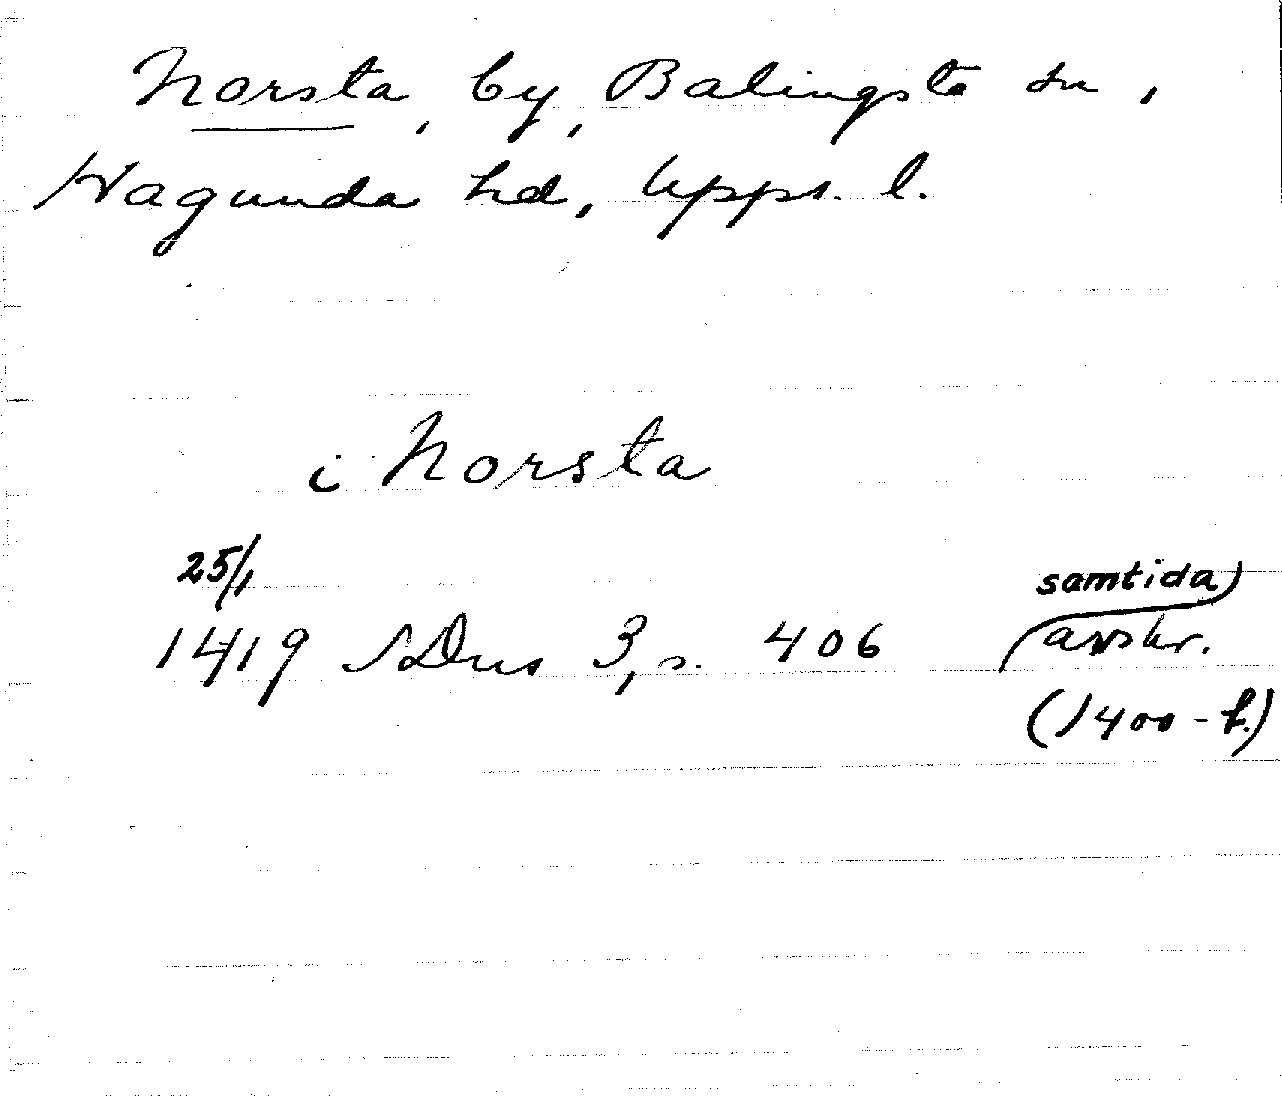 Norsta, by, Balingsta sn,
Hagunda hd, Upps. l.
i Norsta
25/1
1419 SDns 3, s. 406
samtida
avskr.
(1400-t.)